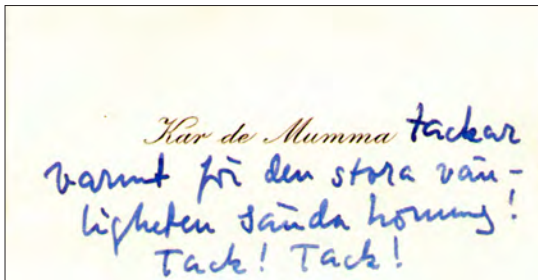 Kar de Mumma tackar
varmt för den stora vän-
ligheten sända honung!
Tack! Tack!